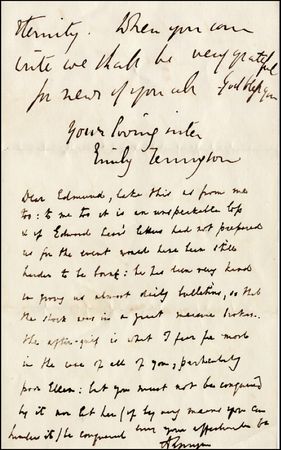 Eternity. When you can
write we shall be very grateful
for news of you all God bless you
Your loving sister
Emily Tennyson
Dear Edmund, take this as from me
too: to me too it is an unspeakable loss
& if Edward had not prepared
us for the event would have been still
harder to be borne: he has been very kind
in giving us almost daily bulletins, so that
the shock was in a great measure broken.
the is what I fear for most
in the case of all of you, particularly
poor Ellen: but you must not be conquered
by it nor let her (if by any means you can
hinder it) be conquered ever your affectionate
A Tennyson